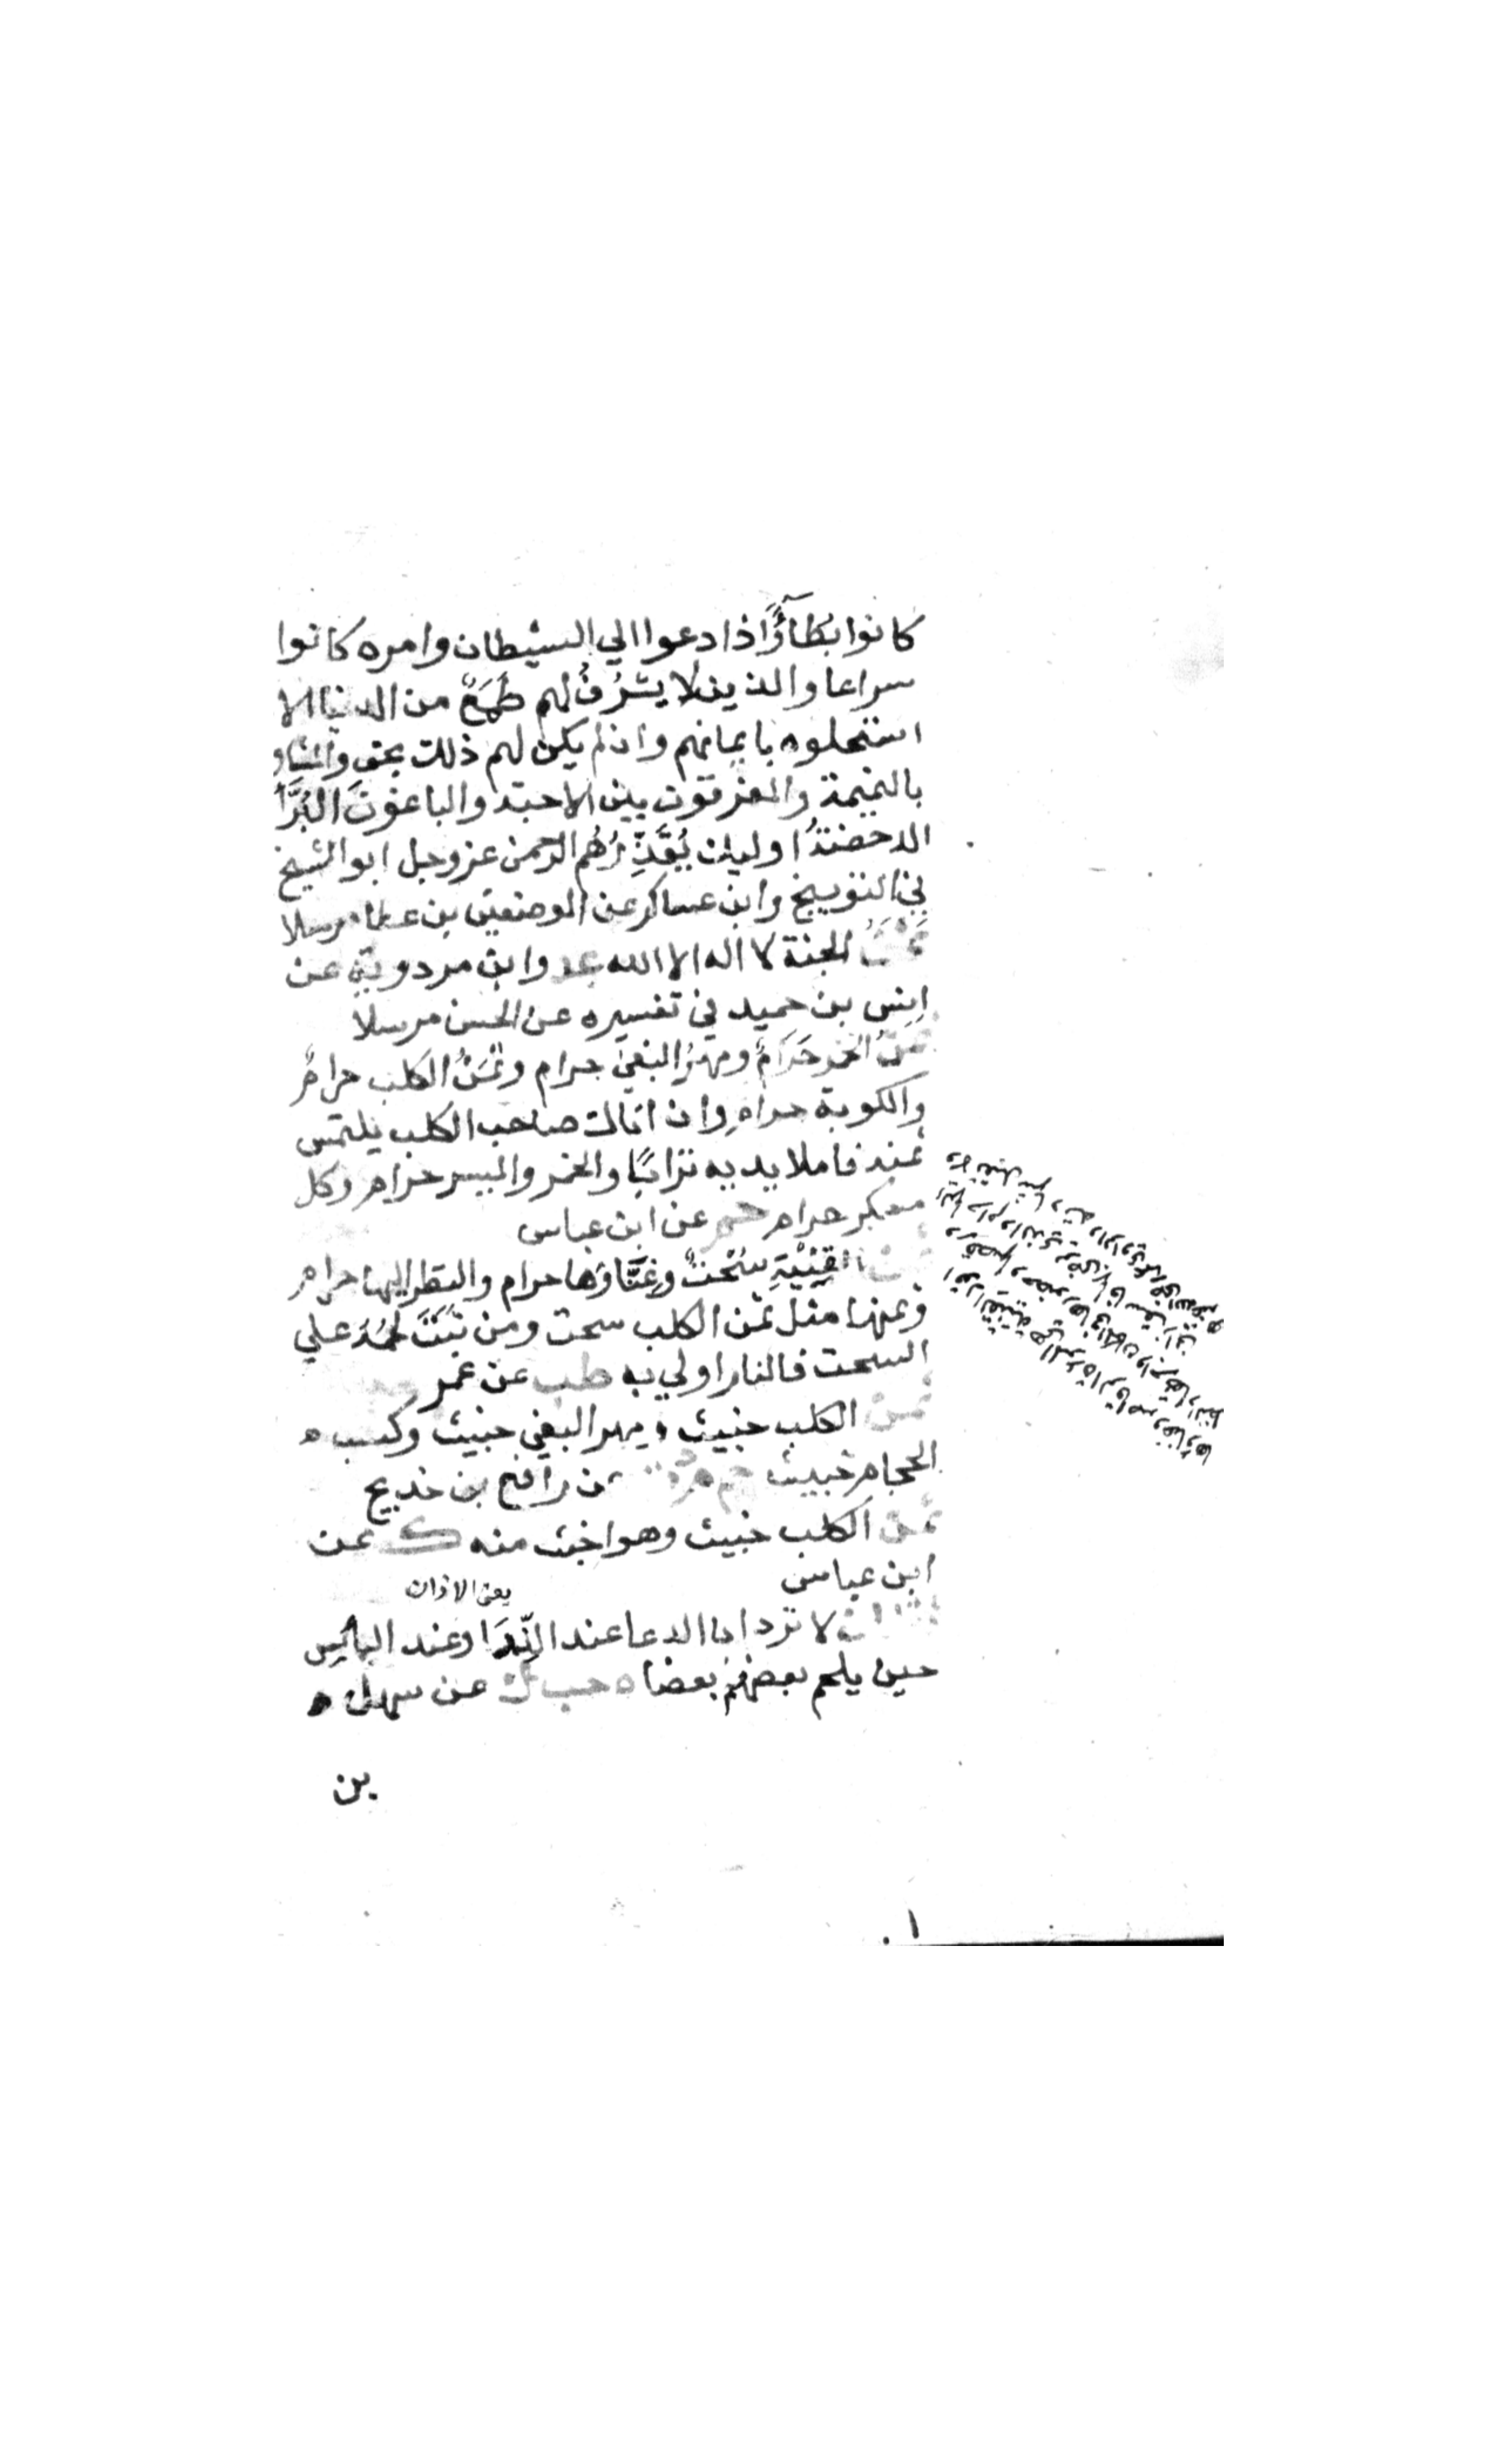 كانوا بُطَآءً اذا دعوا الي الشيطان وامره كانوا
سراعا والذين لا يشرُفُ لهم طَمَعٌ من الدنيا الا
استحلوه بايمانهم وان لم يكن لهم ذلك بحق والمشاو
بالنميمة والمفرقون بين الاحبة والباغون البُرَّأَ
الدحضةُ اوليك يُقَذِّرُهُم الرحمن عز وجل ابو الشيخ
في التوبيخ وابن عساكر عن الوضين بن عطا مرسلا
ثَمَنُ الجنة لا اله الا الله عد وابن مردوية عن
انس بن حميد في تفسيره عن الحسن مرسلا
ثمنُ الخمر حَرَامٌ ومهرُ البغي حرام وثَمَنُ الكلب حرامٌ
والكوبة حرام وان اتاك صاحب الكلب يلتمس
ثمنه فاملا يديه ترابًا والخمر والميسر حرام وكل
مسكر حرام حم عن ابن عباس
ثمن القَيْنَةِ سُحْتٌ وغِنَاؤها حرام والنظر اليها حرام
وثمنها مثل ثمن الكلب سحت ومن نَبَتَ لحمُهُ علي
السحت فالنار اولي به طب عن عمر
ثمن الكلب خبيث ومهر البغي خبيث وكسب
الحجام خبيث حم م د ت عن رافع بن خديج
ثمن الكلب خبيث وهو اخبث منه ك عن
ابن عباس
يعني الاذان
ثنتان لا ترد ان الدعا عند النِّدَا وعند الباس
حين يلحم بعضهم بعضا د حب ك عن سهل
بن